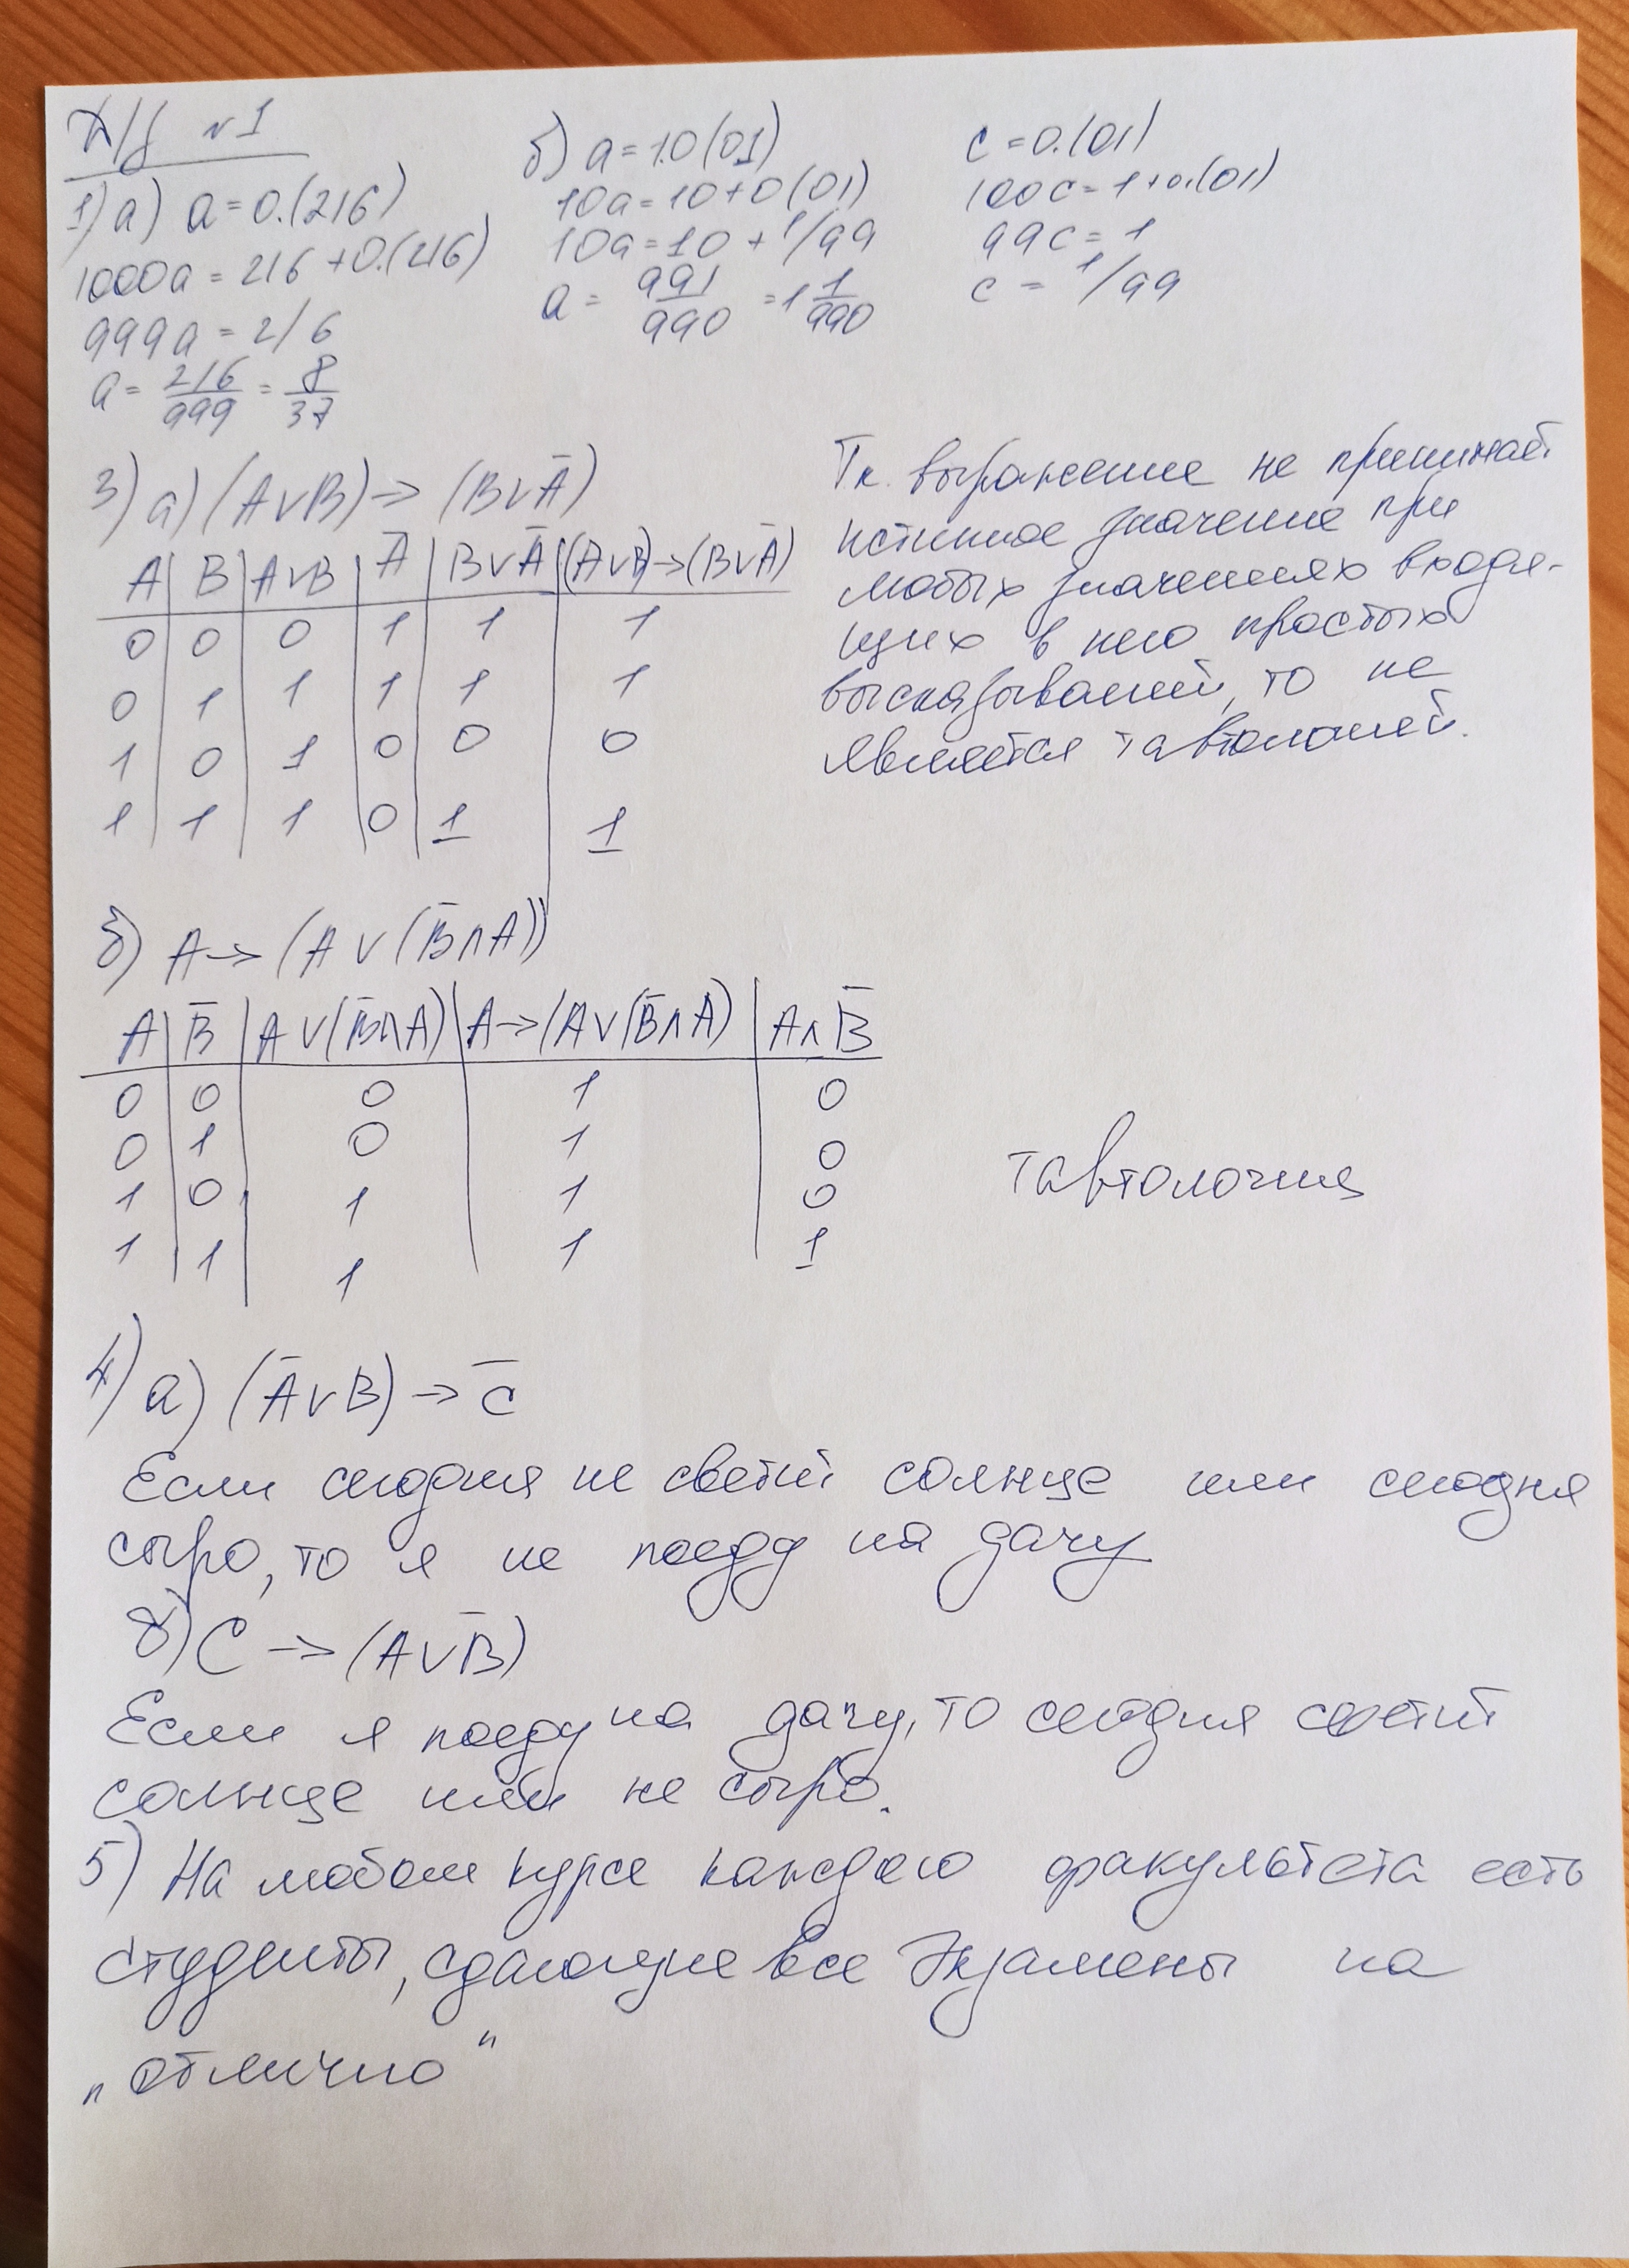 Д/З №1
1) а) a = 0.(216)
1000a = 216 + 0.(216)
999a = 216
a = 216/999 = 8/37
б) a = 1.0(01)
10a = 10 + 0.(01)
10a = 10 + 1/99
a = 991/990 = 1 1/990
c = 0.(01)
100c = 1 + 0.(01)
99c = 1
c = 1/99
3) а) (A∨B) → (B∨A̅)
A | B | A∨B | A̅ | B∨A̅ | (A∨B)→(B∨A̅)
0 0 0 1 1 1
0 1 1 1 1 1
1 0 1 0 0 0
1 1 1 0 1 1
Тк. выражение не принимает
истинное значение при
любых значениях входя-
щих в него простых
высказываний, то не
является тавтологией.
б) A → (A ∨ (B̅∧A))
A | B̅ | A∨(B̅∧A) | A→(A∨(B̅∧A) | A∧B̅
0 0 0 1 0
0 1 0 1 0
1 0 1 1 0
1 1 1 1 1
тавтология
4) а) (A̅∨B) → c̅
Если сегодня не светит солнце или сегодня
сыро, то я не поеду на дачу
б) C → (A∨B̅)
Если я поеду на дачу, то сегодня светит
солнце или не сыро.
5) На любом курсе каждого факультета есть
студенты, сдающие все экзамены на
„отлично"